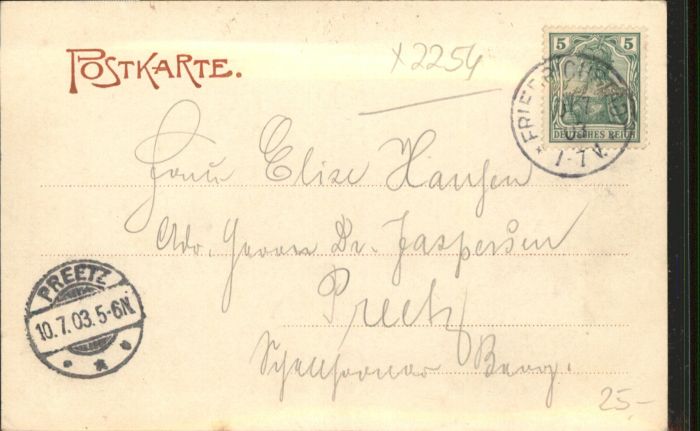 POSTKARTE.
x2254
5 5
DEUTSCHES REICH
FRIEDRICH
03
1-7V.
Elise Hansen
Adr. Herrn Dr. Jaspersen
Preetz
Berg.
PREETZ
10.7.03.5-6N.
25,-